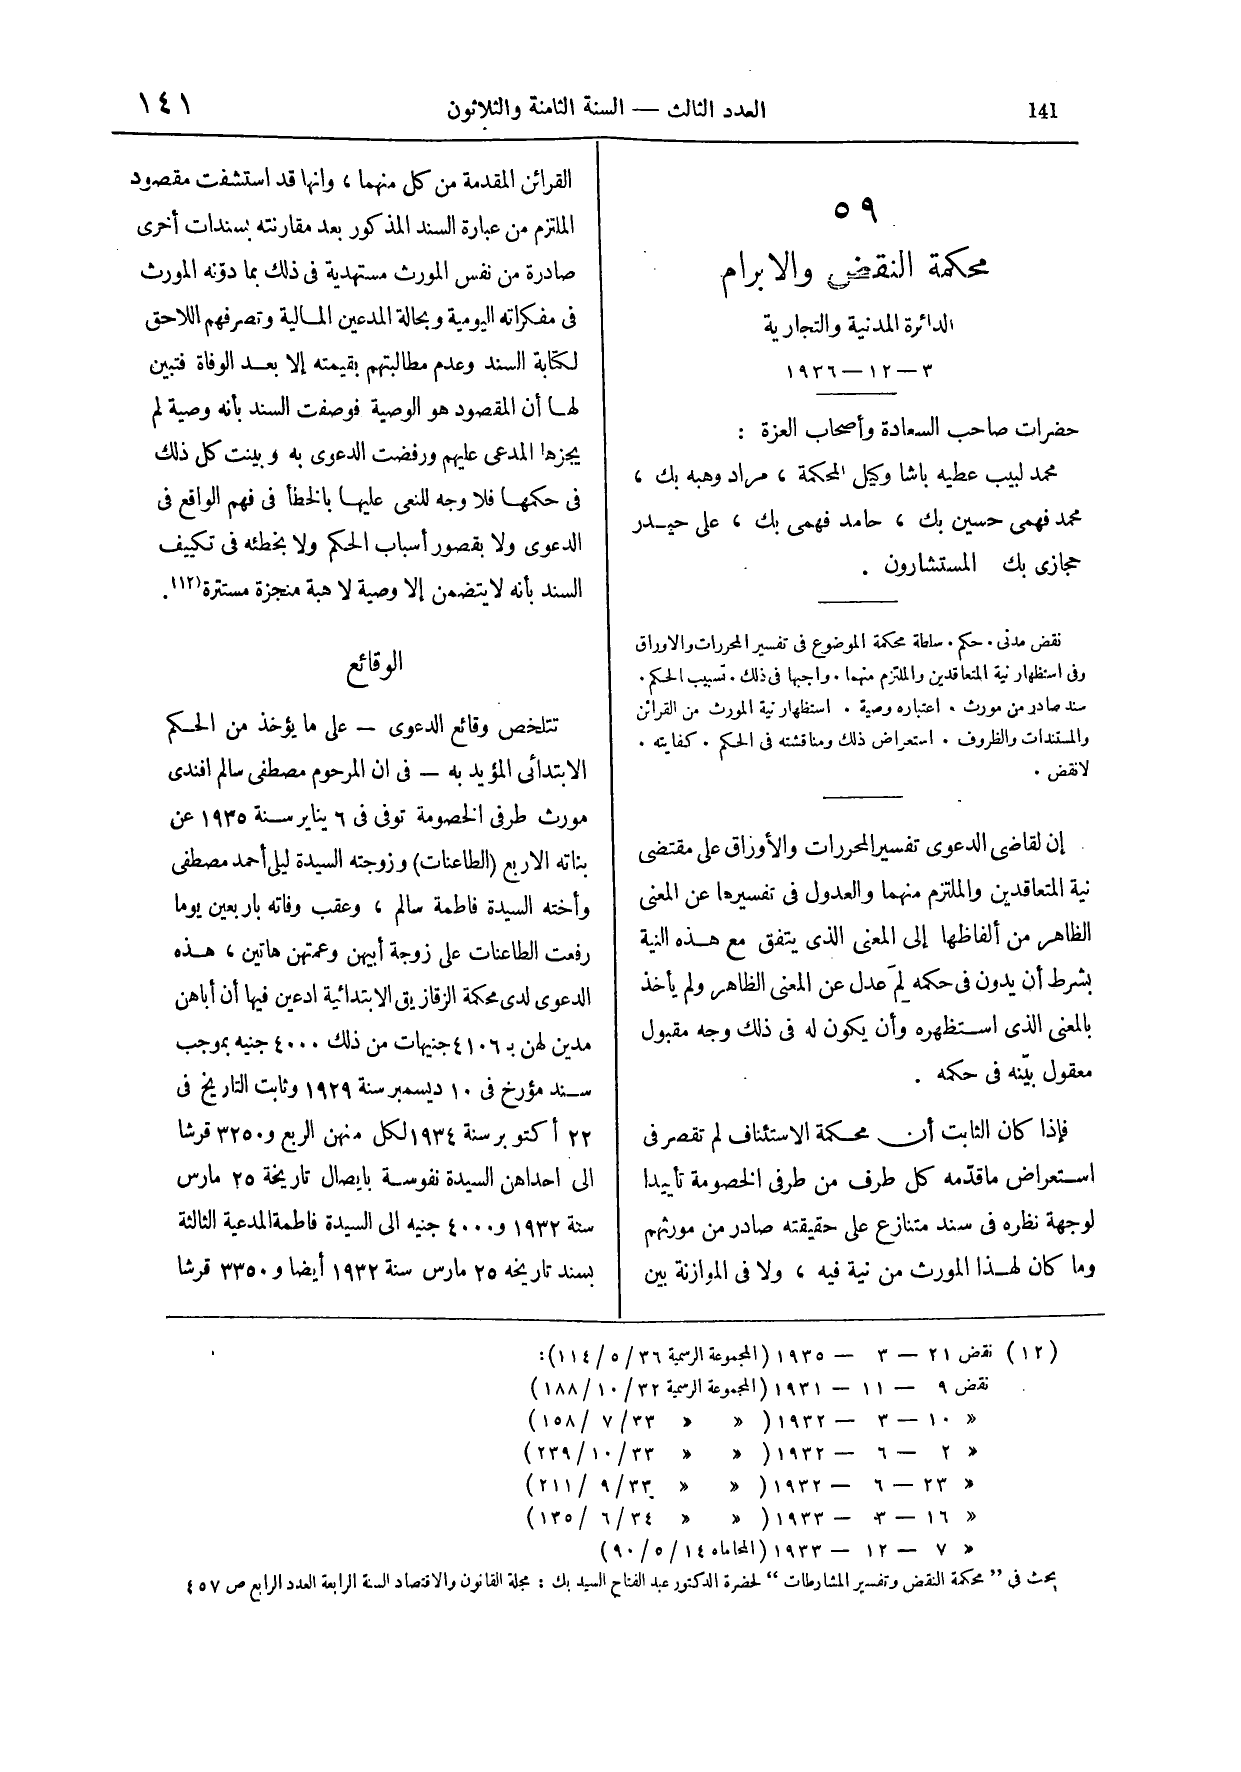 141
العدد الثالث — السنة الثامنة والثلاثون
١٤١
٥٩
محكمة النقض والابرام
الدائرة المدنية والتجارية
٣ — ١٢ — ١٩٣٦
حضرات صاحب السعادة وأصحاب العزة :
محمد لبيب عطيه باشا وكيل المحكمة ، مراد وهبه بك ،
محمد فهمى حسين بك ، حامد فهمى بك ، على حيدر
حجازى بك المستشارون .
نقض مدنى . حكم . سلطة محكمة الموضوع فى تفسير المحررات والاوراق
وفى استظهار نية المتعاقدين والملتزم منهما . واجبها فى ذلك . تسبيب الحكم .
سند صادر من مورث . اعتباره وصية . استظهار نية المورث من القرائن
والمستندات والظروف . استعراض ذلك ومناقشته فى الحكم . كفايته .
لانقض .
إن لقاضى الدعوى تفسير المحررات والأوراق على مقتضى
نية المتعاقدين والملتزم منهما والعدول فى تفسيرها عن المعنى
الظاهر من ألفاظها إلى المعنى الذى يتفق مع هذه النية
بشرط أن يدون فى حكمه لِمَ عدل عن المعنى الظاهر ولم يأخذ
بالمعنى الذى استظهره وأن يكون له فى ذلك وجه مقبول
معقول بيّنه فى حكمه .
فإذا كان الثابت أن محكمة الاستئناف لم تقصر فى
استعراض ماقدّمه كل طرف من طرفى الخصومة تأييدا
لوجهة نظره فى سند متنازع على حقيقته صادر من مورثهم
وما كان لهذا المورث من نية فيه ، ولا فى الموازنة بين
القرائن المقدمة من كل منهما ، وانها قد استشفت مقصود
الملتزم من عبارة السند المذكور بعد مقارنته بسندات أخرى
صادرة من نفس المورث مستهدية فى ذلك بما دوّنه المورث
فى مفكراته اليومية وبحالة المدعين المالية وتصرفهم اللاحق
لكتابة السند وعدم مطالبتهم بقيمته إلا بعد الوفاة فتبين
لها أن المقصود هو الوصية فوصفت السند بأنه وصية لم
يجزها المدعى عليهم ورفضت الدعوى به وبينت كل ذلك
فى حكمها فلا وجه للنعى عليها بالخطأ فى فهم الواقع فى
الدعوى ولا بقصور أسباب الحكم ولا بخطئه فى تكييف
السند بأنه لا يتضمن إلا وصية لا هبة منجزة مستترة(١٢).
الوقائع
تتلخص وقائع الدعوى — على ما يؤخذ من الحكم
الابتدائى المؤيد به — فى ان المرحوم مصطفى سالم افندى
مورث طرفى الخصومة توفى فى ٦ يناير سنة ١٩٣٥ عن
بناته الاربع (الطاعنات) وزوجته السيدة ليلى أحمد مصطفى
وأخته السيدة فاطمة سالم ، وعقب وفاته باربعين يوما
رفعت الطاعنات على زوجة أبيهن وعمتهن هاتين ، هذه
الدعوى لدى محكمة الزقازيق الابتدائية ادعين فيها أن أباهن
مدين لهن بـ ٤١٠٦ جنيهات من ذلك ٤٠٠٠ جنيه بموجب
سند مؤرخ فى ١٠ ديسمبر سنة ١٩٢٩ وثابت التاريخ فى
٢٢ أكتوبر سنة ١٩٣٤ لكل منهن الربع و٣٢٥٠ قرشا
الى احداهن السيدة نفوسة بايصال تاريخة ٢٥ مارس
سنة ١٩٣٢ و٤٠٠٠ جنيه الى السيدة فاطمة المدعية الثالثة
بسند تاريخه ٢٥ مارس سنة ١٩٣٢ أيضا و٣٣٥٠ قرشا
(١٢) نقض ٢١ — ٣ — ١٩٣٥ (المجموعة الرسمية ٣٦/٥/١١٤):
نقض ٩ — ١١ — ١٩٣١ (المجموعة الرسمية ٣٢/١٠/١٨٨)
« ١٠ — ٣ — ١٩٣٢ ( « « ٣٣/٧/١٥٨)
« ٢ — ٦ — ١٩٣٢ ( « « ٣٣/١٠/٢٣٩)
« ٢٣ — ٦ — ١٩٣٢ ( « « ٣٣/٩/٢١١)
« ١٦ — ٣ — ١٩٣٣ ( « « ٣٤/٦/١٣٥)
« ٧ — ١٢ — ١٩٣٣ (المحاماه ١٤/٥/٩٠)
بحث فى “ محكمة النقض وتفسير المشارطات “ لحضرة الدكتور عبد الفتاح السيد بك : مجلة القانون والاقتصاد السنة الرابعة العدد الرابع ص ٤٥٧